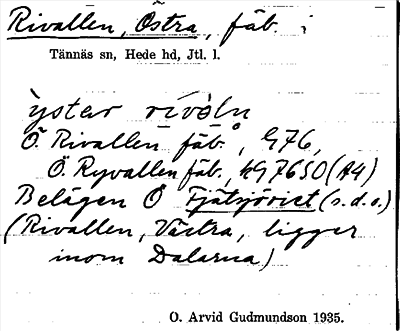 Rivallen, Östra, fäb. i
Tännäs sn, Hede hd, Jtl. l.
ỳstər rívàln
Ö. Rivallen fäb., G76,
Ö. Ryvallen fäb., hG7650 (A4)
Belägen Ö Fjätsjöriet (s.d.o.)
(Rivallen, Västra, ligger
inom Dalarna)
O. Arvid Gudmundson 1935.